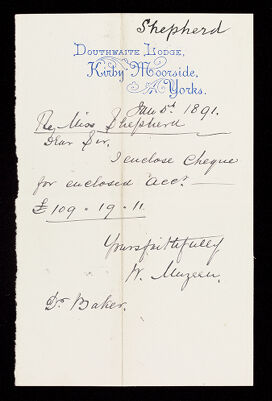 Shepherd
DOUTHWAITE LODGE,
Kirby Moorside,
Yorks.
Jan 5th 1891.
Re, Miss Shepherd
Dear Sir.
I enclose Cheque
for enclosed acct
£109 - 19 - 11
Yours faithfully
W.
Dr Baker.